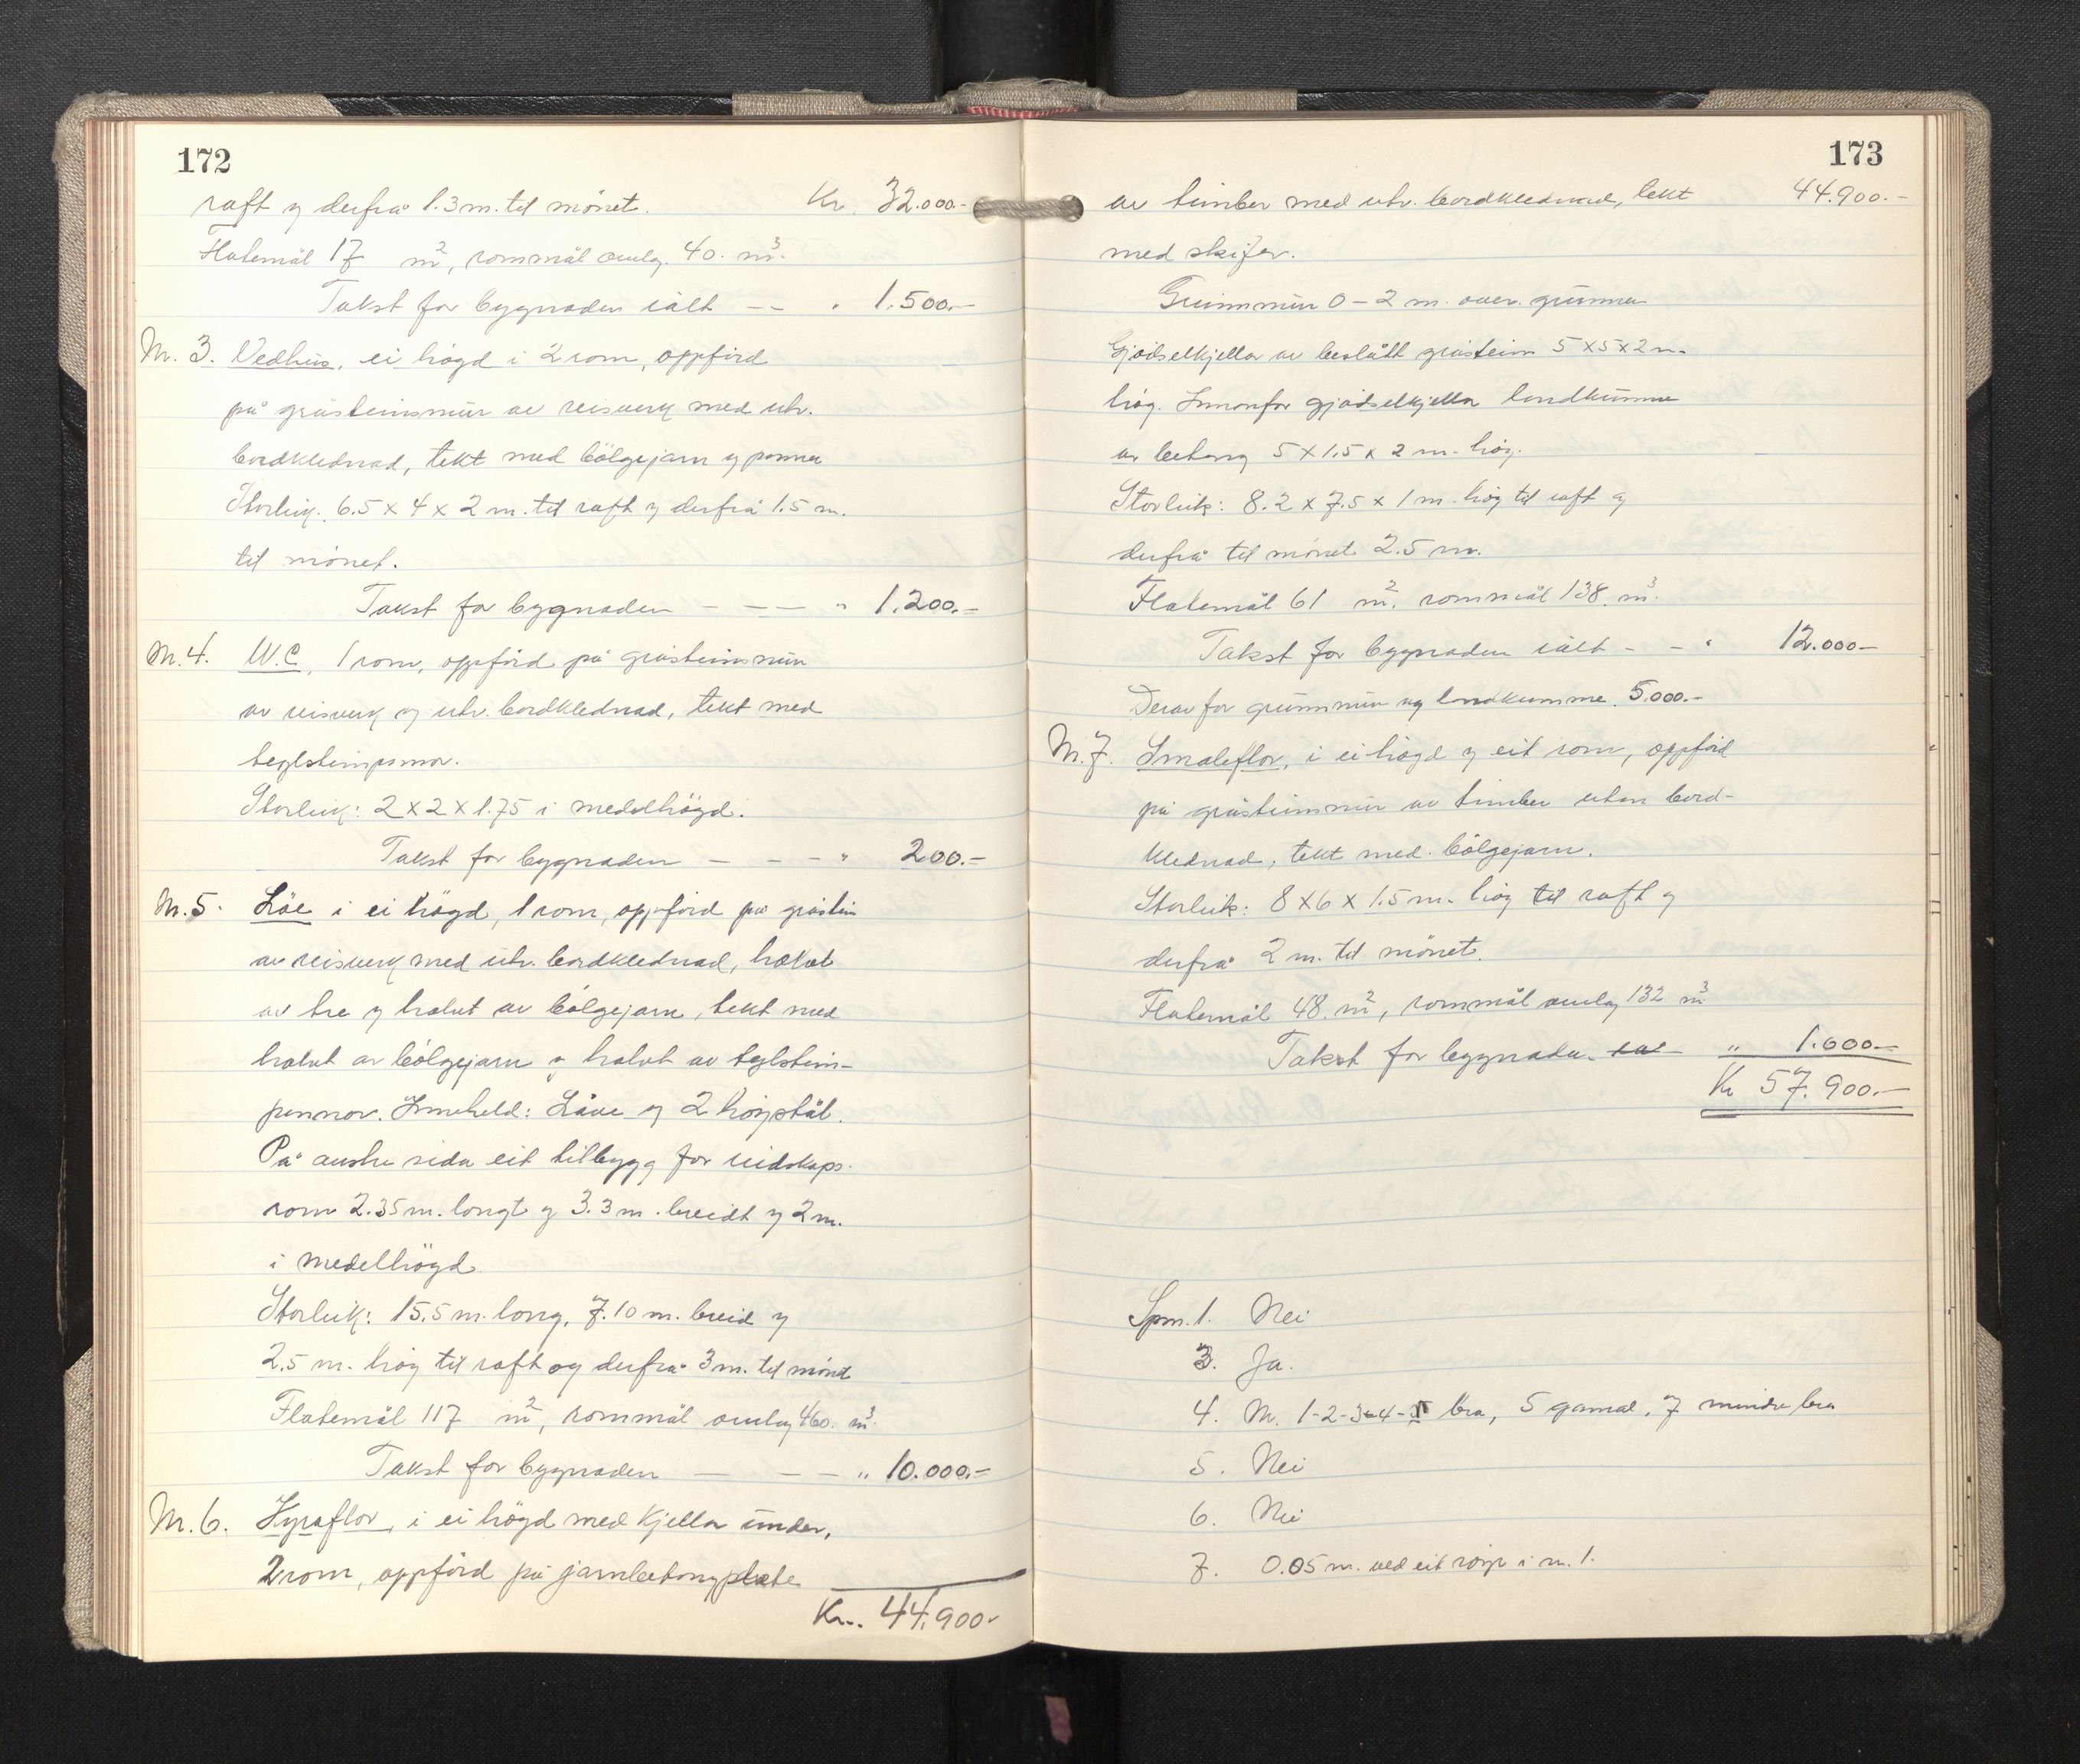 172
raft og derfrå 1.3 m. til mönet. Kr. 32.000.-
Flatemål 17 m², rommål omlag 40. m³.
Takst for bygnaden ialt - - " 1.500.-
M. 3. Vedhus, ei högd i 2 rom, oppförd
på gråsteinsmur av reisverk med utv.
bordklednad, tekt med bölgejarn og panner
Storleik: 6.5 x 4 x 2 m. til raft og derfrå 1.5 m.
til mönet.
Takst for bygnaden - - - " 1.200.-
M. 4. W.C, 1 rom, oppförd på gråsteinsmur
av reisverk og utv. bordklednad, tekt med
teglsteinpannor.
Storleik: 2 x 2 x 1.75 i medelhögd.
Takst for bygnaden - - - " 200.-
M. 5. Löe i ei högd, 1 rom, oppförd på gråstein
av reisverk med utv. bordklednad, halvt
av tre og halvt av bölgejarn, tekt med
halvt av bölgejarn og halvt av teglstein-
pannor. Inneheld: Låve og 2 höystål.
På austre sida eit tilbygg for reidskaps-
rom 2.35 m. langt og 3.3 m. breidt og 2 m.
i medelhögd.
Storleik: 15.5 m. lang, 7.10 m. breid og
2.5 m. hög til raft og derfrå 3 m. til mönet
Flatemål 117 m², rommål omlag 460. m³.
Takst for bygnaden - - - " 10.000.-
M. 6. Kyraflor, i ei högd med kjellar under,
2 rom, oppförd på jarnbetongplate
Kr. 44.900.-
173
av timber med utv. bordklednad, tekt 44.900.-
med skifer.
Grunnmur 0 - 2 m. over grunnen
Gjödselkjellar av beslått gråstein 5 x 5 x 2 m.
hög. Innanfor gjödselkjellar landkumme
av betong 5 x 1.5 x 2 m. hög.
Storleik: 8.2 x 7.5 x 1 m. hög til raft og
derfrå til mönet 2.5 m.
Flatemål 61 m², rommål 138. m³.
Takst for bygnaden ialt - - " 12.000-
Derav for grunnmur og landkumme 5.000.-
M. 7. Smaleflor, i ei högd og eit rom, oppförd
på gråsteinmur av timber utan bord-
klednad, tekt med bölgejarn.
Storleik: 8 x 6 x 1.5 m. hög til raft og
derfrå 2 m. til mönet.
Flatemål 48. m², rommål omlag 132 m³
Takst for bygnaden " 1.000.-
Kr 57.900.-
Spm. 1. Nei
3. Ja.
4. M. 1-2-3-4- bra, 5 gamal, 7 mindre bra
5. Nei
6. Nei
7. 0.05 m. ved eit röyr i m. 1.